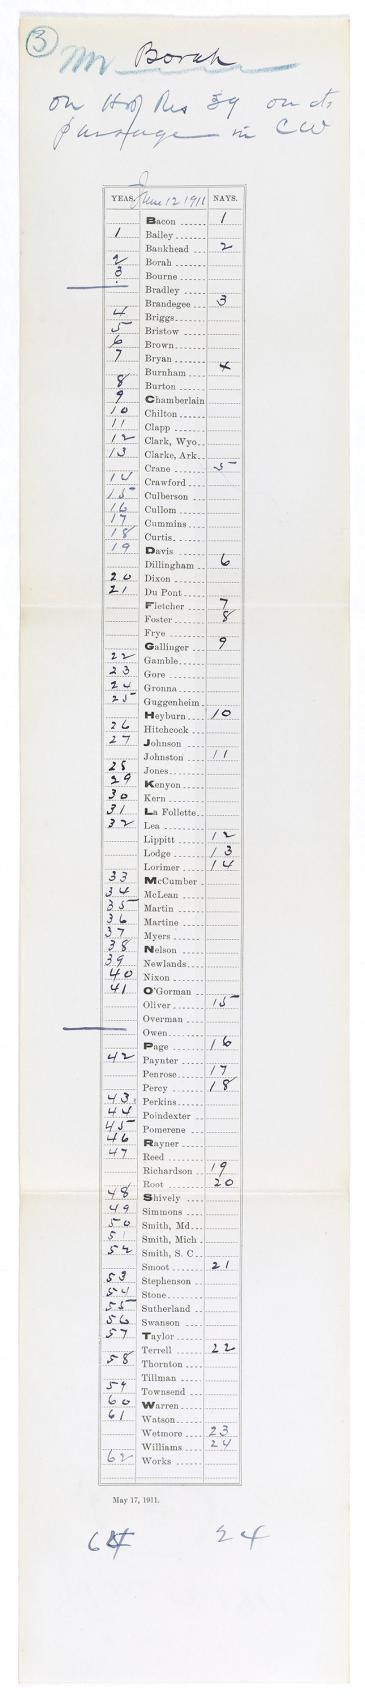 3
Mr Borah
on H of Res 39 on its
passage in CW
YEAS. June 12 1911 NAYS.
Bacon 1
1 Bailey
Bankhead 2
2 Borah
3 Bourne
Bradley
Brandegee 3
4 Briggs
5 Bristow
6 Brown
7 Bryan
Burnham 4
8 Burton
9 Chamberlain
10 Chilton
11 Clapp
12 Clark, Wyo.
13 Clarke, Ark.
Crane 5
14 Crawford
15 Culberson
16 Cullom
17 Cummins
18 Curtis
19 Davis
Dillingham 6
20 Dixon
21 Du Pont
Fletcher 7
Foster 8
Frye
Gallinger 9
22 Gamble
23 Gore
24 Gronna
25 Guggenheim
Heyburn 10
26 Hitchcock
27 Johnson
Johnston 11
28 Jones
29 Kenyon
30 Kern
31 La Follette
32 Lea
Lippitt 12
Lodge 13
Lorimer 14
33 McCumber
34 McLean
35 Martin
36 Martine
37 Myers
38 Nelson
39 Newlands
40 Nixon
41 O'Gorman
Oliver 15
Overman
Owen
Page 16
42 Paynter
Penrose 17
Percy 18
43 Perkins
44 Poindexter
45 Pomerene
46 Rayner
47 Reed
Richardson 19
Root 20
48 Shively
49 Simmons
50 Smith, Md
51 Smith, Mich
52 Smith, S. C
Smoot 21
53 Stephenson
54 Stone
55 Sutherland
56 Swanson
57 Taylor
Terrell 22
58 Thornton
Tillman
59 Townsend
60 Warren
61 Watson
Wetmore 23
Williams 24
62 Works
May 17, 1911.
64 24